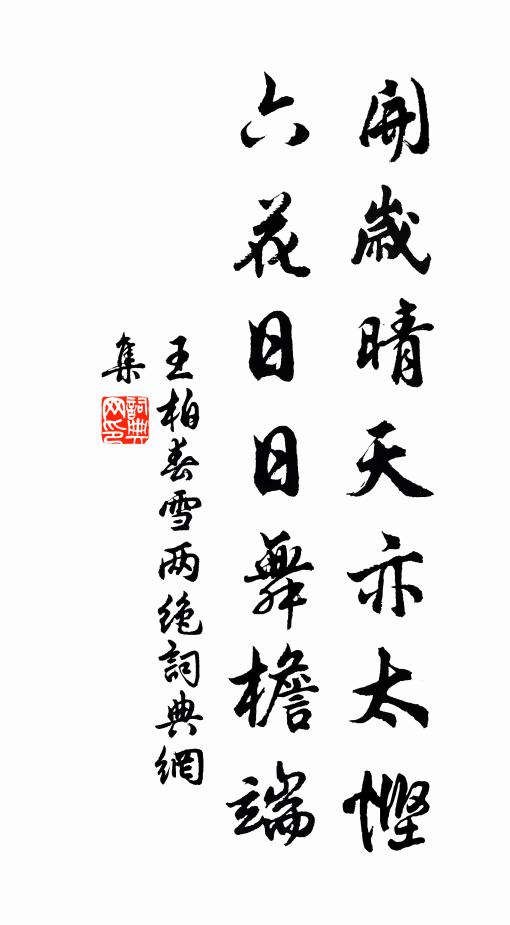 開歲晴天亦太慳
六花日日舞檐端
王柏春雪两绝詞典網
集
詞典网印